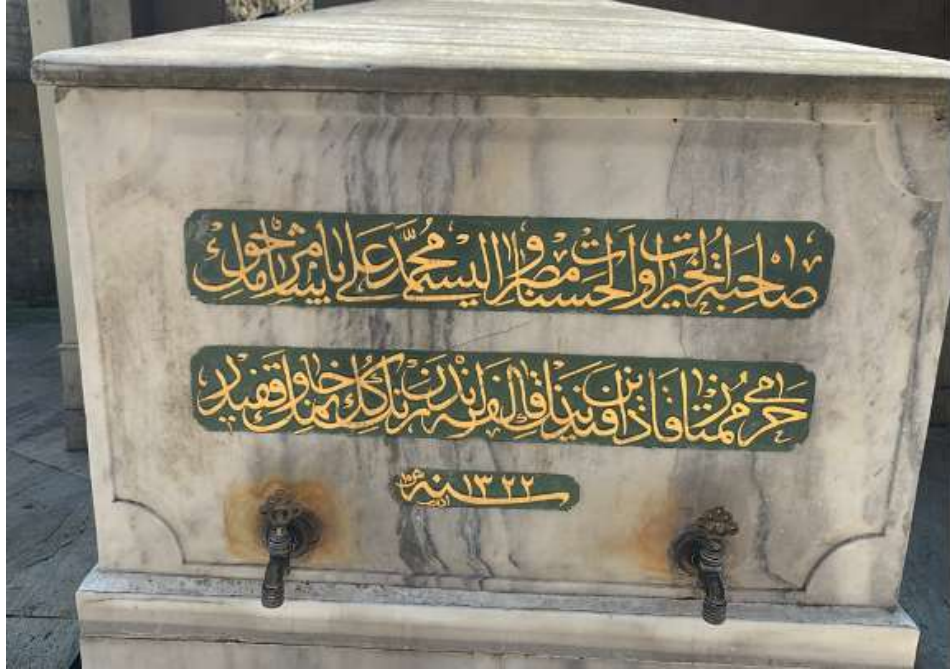 صاحبة الخيرات والحسنات مصر واليسى محمد على پاشا مرحومك
حرمى ممتاز قادين افندينك قالفه لرندن خانمك وقفيدر
سنه ١٣٢٢